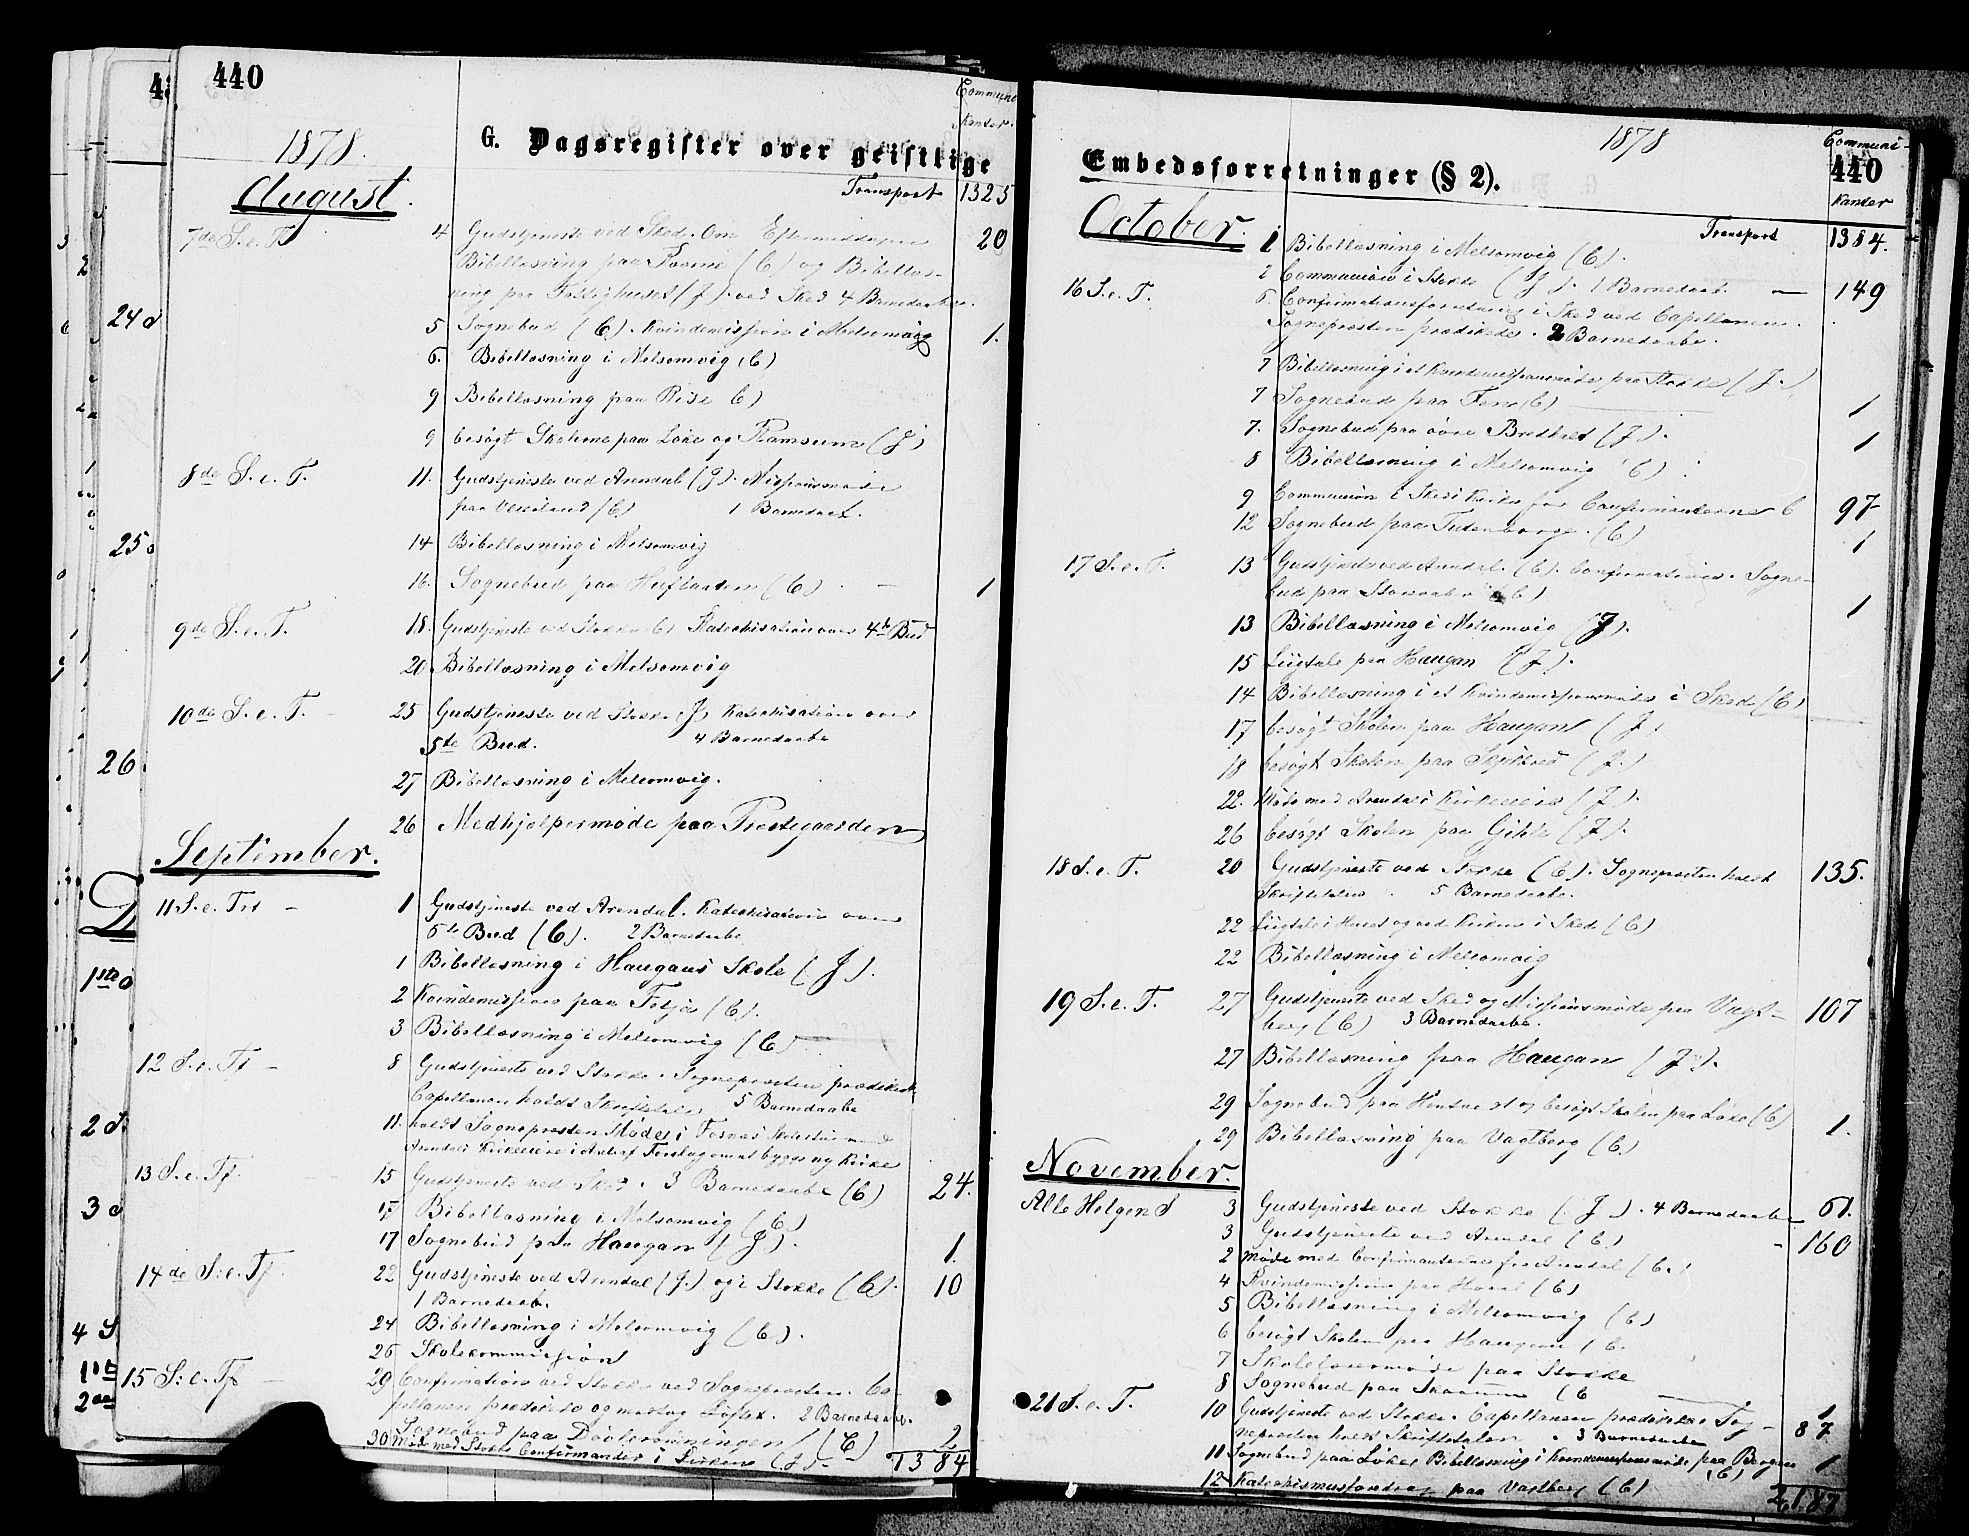 440
Communi
kanter.
1878.
G. Dagsregister over geistlige
August.
Transport 1325
7de S. e. T. 4 Gudstjeneste ved Sked. Om Eftermiddagen 20
Bibellæsning paa (C) og Bibellæs-
ning paa Fattighuset (J) ved Sked 4 Barnedaabe.
5 Sognebud (C). Kvindemission i Melsomvig 1.
6. Bibellæsning i Melsomvig (C)
9 Bibellæsning paa Rise C)
9 besøgt Skolerne paa Løke og Ramsum (J)
8de S. e. T. 11. Gudstjeneste ved Arendal (J). Missionsmøde
paa (C) 1 Barnedaab.
14 Bibellæsning i Melsomvig
16. Sognebud paa (C) 1
9de S. e. T. 18. Gudstjeneste ved Stokke (C) Katechisation over 4de Bud
20 Bibellæsning i Melsomvig
10de S. e. T. 25 Gudstjeneste ved Stokke (J) Katechisation over
5te Bud. 4 Barnedaabe
27 Bibellæsning i Melsomvig.
26 Medhjelpermøde paa Prestegaarden
September.
11 S. e. Trt 1 Gudstjeneste ved Arendal. Katechisation over
6te Bud (C). 2 Barnedaabe
1 Bibellæsning i Haugans Skole (J).
2 Kvindemission paa (C).
3 Bibellæsning i Melsomvig (C)
12 S. e. Tf 8 Gudstjeneste ved Stokke. Sognepresten prædikede
Capellanen holdt Skriftetalen 5 Barnedaabe
11. holdt Sognepresten Møde i med
Arendals Kirkeeiere i Forslag om at bygge ny Kirke
13 S. e. Tf. 15 Gudstjeneste ved Sked. 3 Barnedaabe (C) 24.
17 Bibellæsning i Melsomvig (C)
17 Sognebud paa Haugan (J). 1.
14de S. e. Tf. 22 Gudstjeneste ved Arendal (J.) og i Stokke (C). 10
1 Barnedaab.
24 Bibellæsning i Melsomvig (C).
26 Skolekommission
15 S. e. Tf. 29 Confirmation ved Stokke ved Sognepresten. Ca-
pellanen prædikede og modtog Løftet. 2 Barnedaabe.
Sognebud paa (C) 2
30 Møde med Stokke Confirmander i Kirken (J). 1384
Embedsforretninger (§ 2).
1878
Communi-
440
kanter
October.
Transport 1384.
1 Bibellæsning i Melsomvig (C).
16 S. e. T. 2 Communion i Stokke (J). 1 Barnedaab. 149
6. Confirmationsforretning i Sked ved Capellanen.
Sognepresten prædikede. 2 Barnedaabe.
7 Bibellæsning i et Kvindemissionsmøde paa Stokke (J.)
7 Sognebud paa (C) 1
7. Sognebud paa øvre (J). 1
8 Bibellæsning i Melsomvig (C)
9 Communion i Skeds Kirke for Confirmanterne C 97
12 Sognebud paa (C) 1
17 S. e. T. 13 Gudstjeneste ved Arendal. (C). Confirmation. Sogne-
bud paa (C) 1
13 Bibellæsning i Melsomvig (J).
15 Liigtale paa Haugan (J).
14 Bibellæsning i et Kvindemissionsmøde i Skede (C)
17 besøgt Skolen paa Haugan (J)
18 besøgt Skolen paa (J.)
22. Møde med Arendals Kirkeeiere (J).
26 besøgt Skolen paa Gihle (J).
18 S. e. T. 20 Gudstjeneste ved Stokke (C). Sognepresten holdt 135.
Skriftetalen. 5 Barnedaabe.
22 Liigtale i Huset og ved Kirken i Sked (C)
22 Bibellæsning i Melsomvig
19 S. e. T. 27 Gudstjeneste ved Sked og Missionsmøde paa Vagt- 107
berg (C) 3 Barnedaabe.
27 Bibellæsning paa Haugan (J).
29 Sognebud paa og besøgt Skolen paa Løke (C) 1.
29 Bibellæsning paa Vagtberg (C)
November.
Alle Helgen S 3 Gudstjeneste ved Stokke (J). 4 Barnedaabe 61.
3 Gudstjeneste ved Arendal (C.) 160
2 Møde med Confirmanterne fra Arendal (C.)
4 Kvindemission paa (C)
5 Bibellæsning i Melsomvig (C)
6 besøgt Skolen paa Haugan (C.
7 Skolelærermøde paa Stokke
8 Sognebud paa (C 1
21 S. e. T. 10 Gudstjeneste ved Stokke. Capellanen prædikede. Sog- 87
nepresten holdt Skriftetalen. 3 Barnedaabe
11 Sognebud paa Løke. Bibellæsning i Kvindemissionsmøde paa Bergan 1
(C)
12 Katekismusforedrag paa Vagtberg (C) 2,187